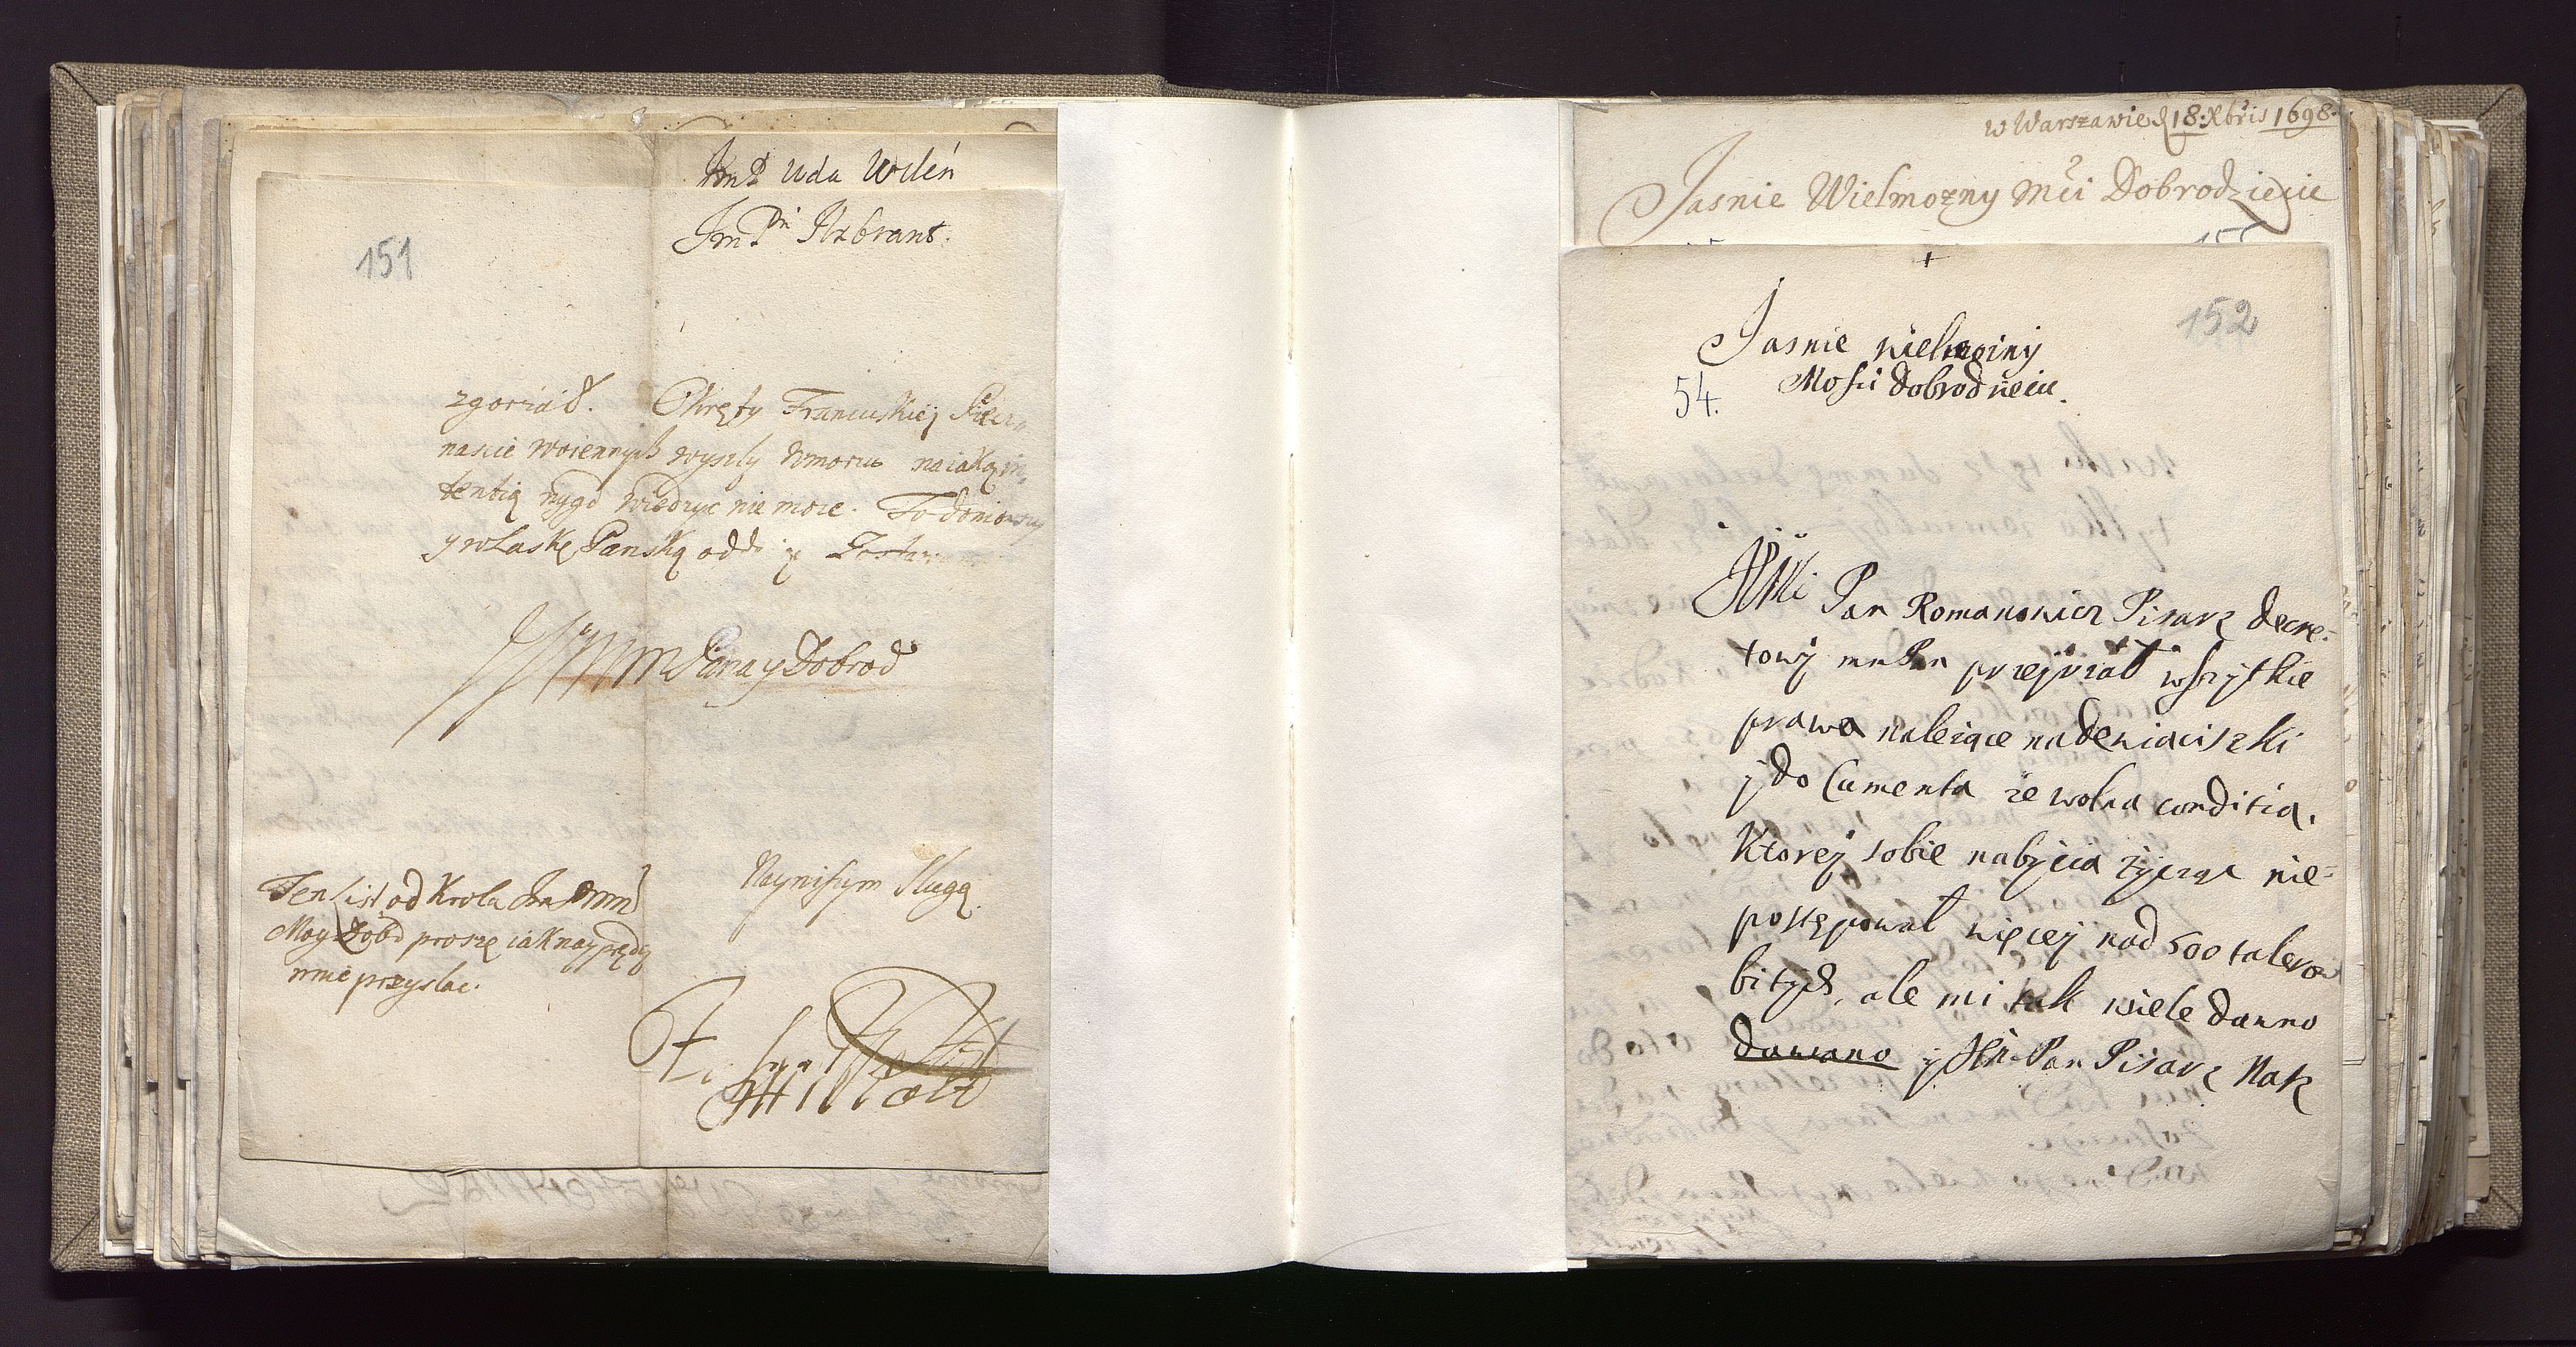 Uda Wileń
Im Pn Hzbrant.
151
zgorzał. Okręty Francuskiej
nascie woiennych wyszły na iaką in
tentią nygd wiedzyć nie może. To
y w Łaskę Panską
Pana y Dobrod
Naynisszym Slugą
Ten List od Krola
May Dobd proszę iak nayprędzy
mnie przysłac.
w Warszawie d 18. Xbris 1698.
Jasnie Wielmozny Mći Dobrodzieiu
152
Jasnie wielmożny
54.
Mosci Dobrodzieiu.
JMći Pan Romanowicz Pisarz decre-
towy przejrzał wszytkie
prawa należące na
y documenta że wolna conditia.
Ktorej sobie nabycia życząc nie-
postępował więcej nad 500 talerow
bitych, ale mi tak wiele dawno
dawano y Pan Pisarz Nasz